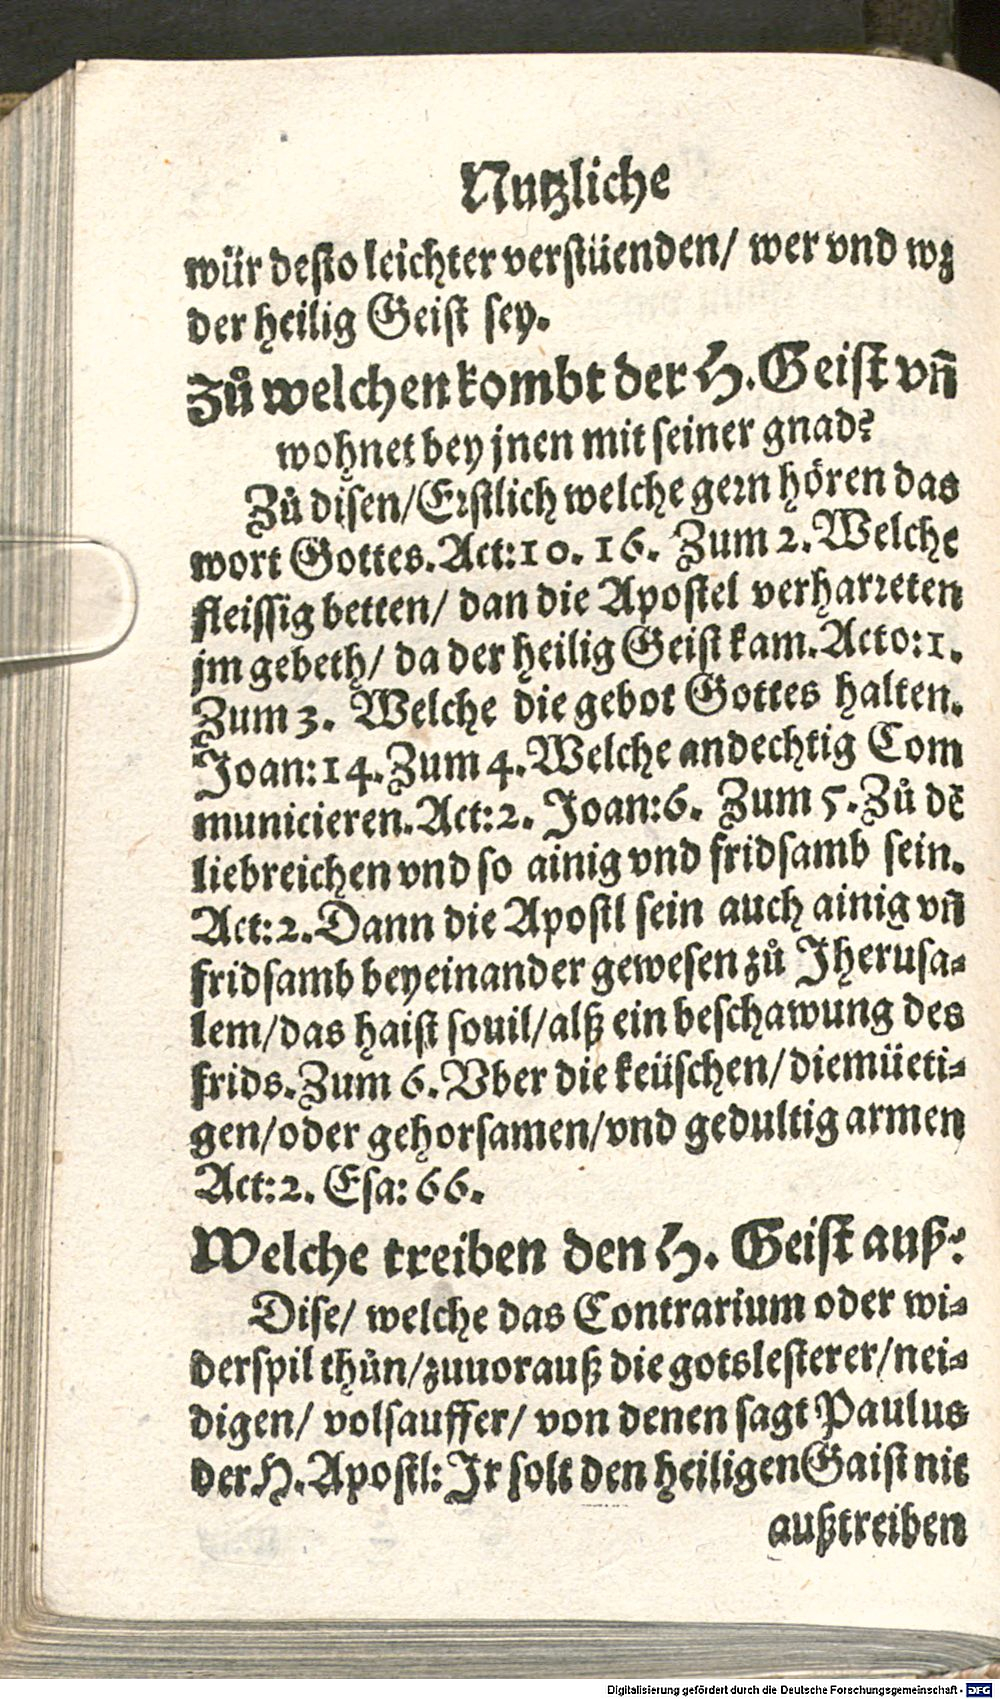 Nutzliche
wür desto leichter verstüenden/ wer vnd wz
der heilig Geist sey.
Zů welchen kombt der H. Geist vñ
wohnet bey jnen mit seiner gnad?
Zů disen/Erstlich welche gern hören das
wort Gottes. Act:10. 16. Zum 2. Welche
fleissig betten/ dan die Apostel verharreten
jm gebeth/ da der heilig Geist kam. Acto:1.
Zum 3. Welche die gebot Gottes halten.
Joan:14. Zum 4. Welche andechtig Com
municieren. Act:2. Joan:6. Zum 5. Zů dẽ
liebreichen vnd so ainig vnd fridsamb sein.
Act:2. Dann die Apostl sein auch ainig vñ
fridsamb beyeinander gewesen zů Jherusa-
lem/das haist souil/alß ein beschawung des
frids. Zum 6. Vber die keüschen/ diemüeti-
gen/oder gehorsamen/vnd gedultig armen
Act:2. Esa: 66.
Welche treiben den H. Geist auß?
Dise/ welche das Contrarium oder wi-
derspil thůn/zuuorauß die gotslesterer/nei-
digen/ volsauffer/ von denen sagt Paulus
der H. Apostl: Jr solt den heiligen Gaist nit
außtreiben
Digitalisierung gefördert durch die Deutsche Forschungsgemeinschaft - DFG